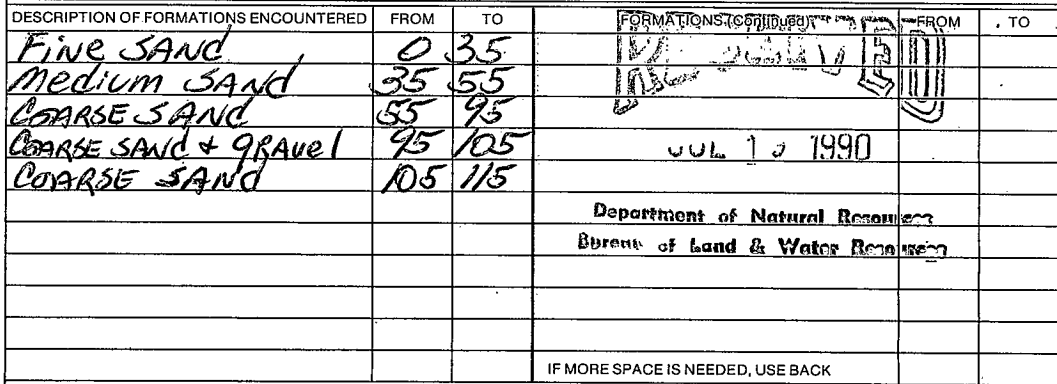 DESCRIPTION OF FORMATIONS ENCOUNTERED FROM TO FORMATIONS (Continued) FROM TO
Fine SANd 0 35
Medium SANd 35 55
COARSE SANd 55 95
COARSE SANd + gRAvel 95 105
COARSE SANd 105 115
RECEIVED
JUL 1 1990
Department of Natural Resources
Bureau of Land & Water Resources
IF MORE SPACE IS NEEDED, USE BACK